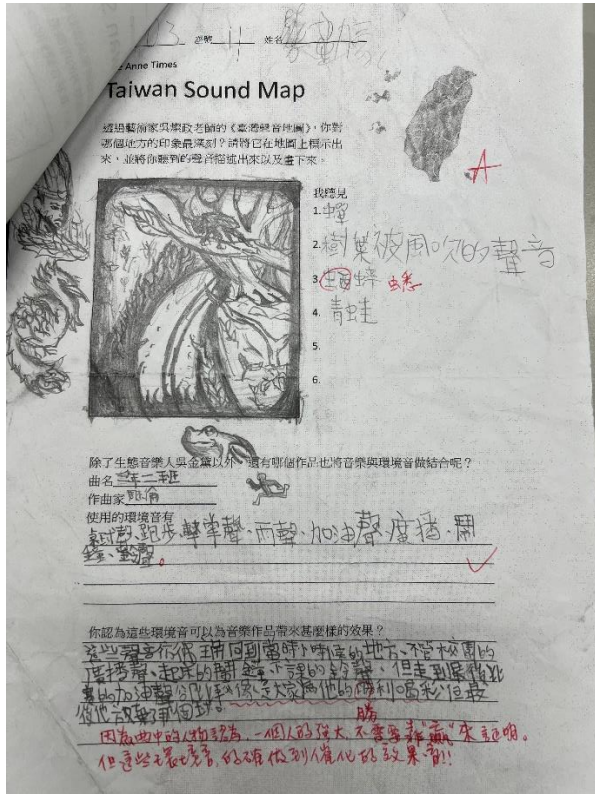 座號 11 姓名
Anne Times
Taiwan Sound Map
透過藝術家吳燦政老師的《臺灣聲音地圖》，你對
哪個地方的印象最深刻？請將它在地圖上標示出
來，並將你聽到的聲音描述出來以及畫下來。
A
我聽見
1.蟬
2.樹葉被風吹的聲音
3.蟀 蟋
4.青蛙
5.
6.
除了生態音樂人吳金黛以外，還有哪個作品也將音樂與環境音做結合呢？
曲名 三年二班
作曲家 周杰倫
使用的環境音有
跑步、擊掌聲、雨聲、加油聲、廣播、鬧
鐘、鈴聲。
你認為這些環境音可以為音樂作品帶來甚麼樣的效果？
這些聲音彷彿回到當時小時候的地方、不管校園的
廣播聲、起床的鬧鐘、下課的鈴聲、但走到最後
的加油聲 像是大家為他的利喝彩但最
後他
勝
因為曲中的人物認為，一個人的強大，不需要靠"贏"來證明。
但這些環境音，的確做到催化的效果!!